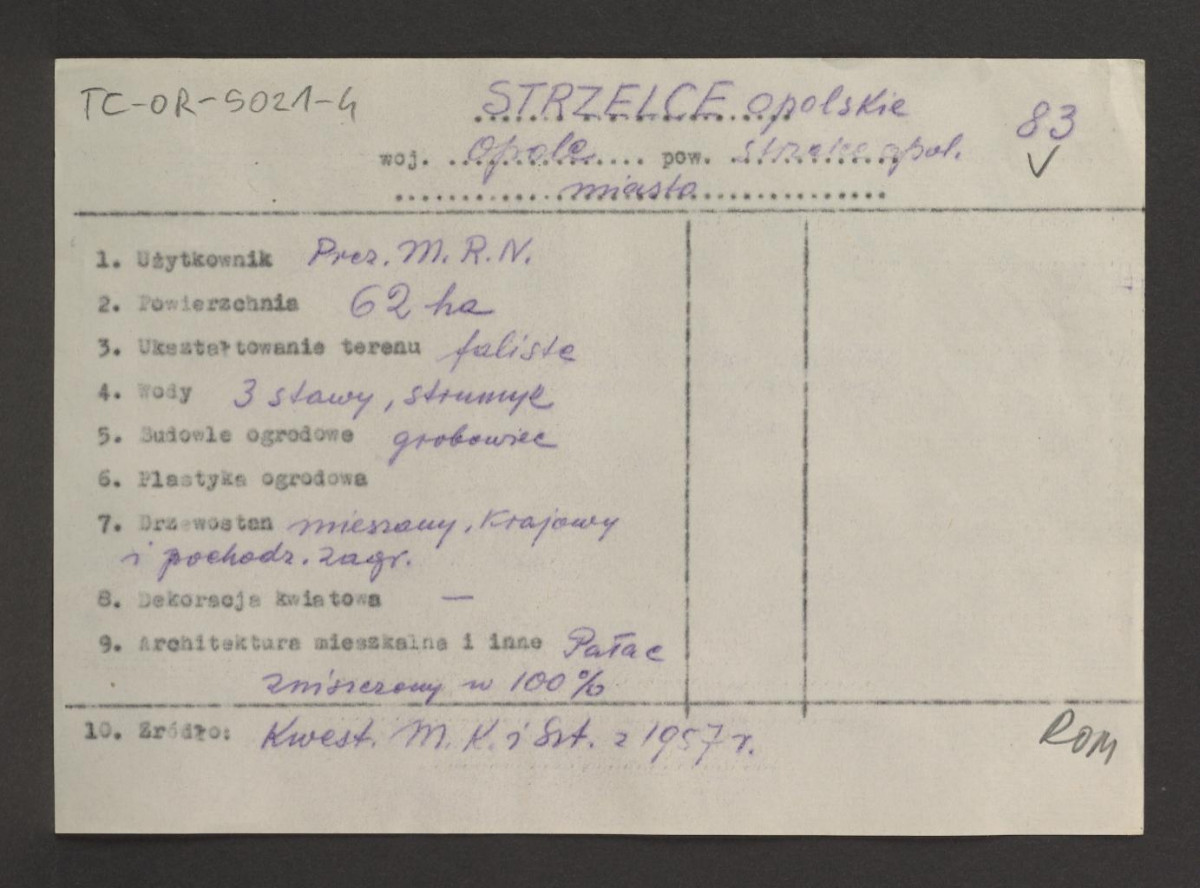 TC-OR-5021-4
STRZELCE opolskie
83
woj. Opole pow. Strzelce opol.
miasto
1. Użytkownik Prez. M. R. N.
2. Powierzchnia 62 ha
3. Ukształtowanie terenu faliste
4. Wody 3 stawy, strumyk
5. Budowle ogrodowe grobowiec
6. Plastyka ogrodowa
7. Drzewostan mieszany, Krajowy
i pochodz. zagr.
8. Dekoracja kwiatowa —
9. Architektura mieszkalna i inne Pałac
zniszczony w 100%
10. Źródło: Kwest. M. K. i Szt. z 1957 r.
ROM